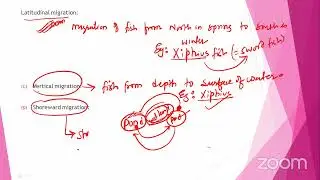 Latitudinal migration:
→ migration of fish from North in spring to South in
winter
Eg: Xiphius fish (= sword fish)
(c) Vertical migration → fish from depth to surface of water.
Eg: Xiphius
(d) Shoreward migration:
Pond
Pond
→ Str
zoom